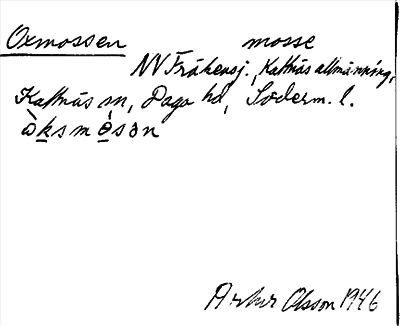 Oxmossen mosse
NV Fräkensj., Kattnäs allmänning,
Kattnäs sn, Daga hd, Söderm. l.
Arthur Olsson 1946